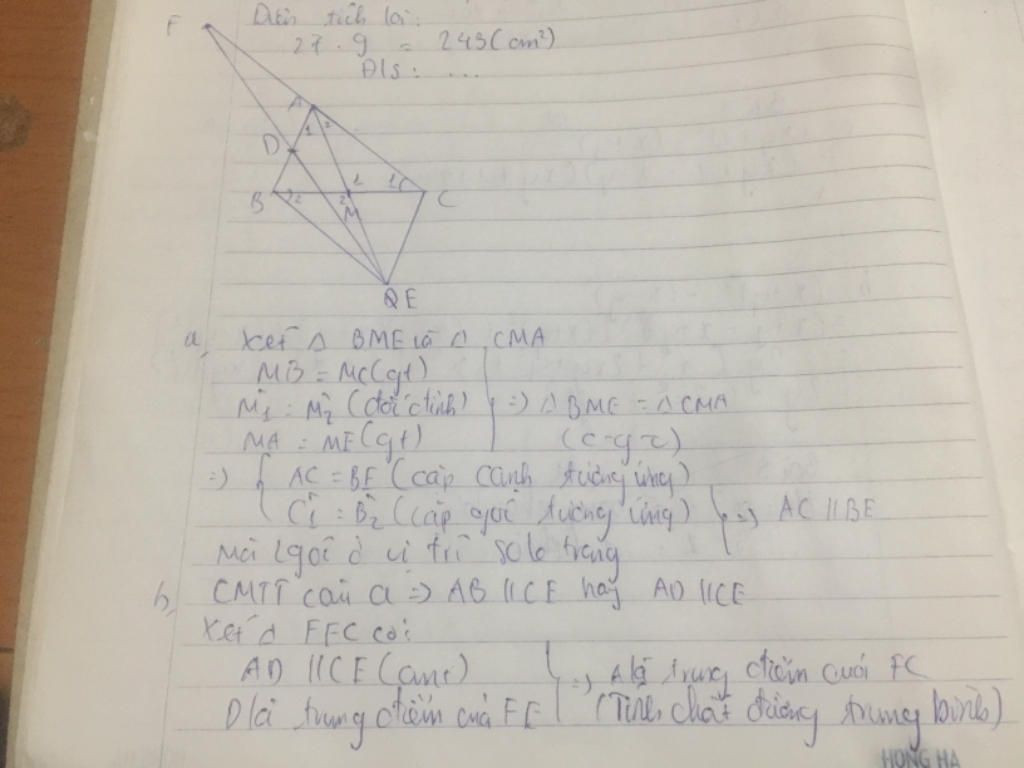 Diện tích là:
27 . 9 = 243 (cm²)
Đ/s: ...
F
A
1 2
D
B 2 2 M 1 1 C
E
a, Xét Δ BME và Δ CMA
MB = MC (gt)
M̂1 = M̂2 (đối đỉnh) => Δ BME = Δ CMA
MA = ME (gt) (c-g-c)
=> { AC = BE (cặp cạnh tương ứng)
Ĉ1 = B̂2 (cặp góc tương ứng) => AC // BE
Mà 2 góc ở vị trí so le trong
b, CMTT câu a => AB // CE hay AD // CE
Xét Δ FEC có:
AD // CE (cmt) => A là trung điểm cuả FC
D là trung điểm của FE (Tính chất đường trung bình)
HONG HA